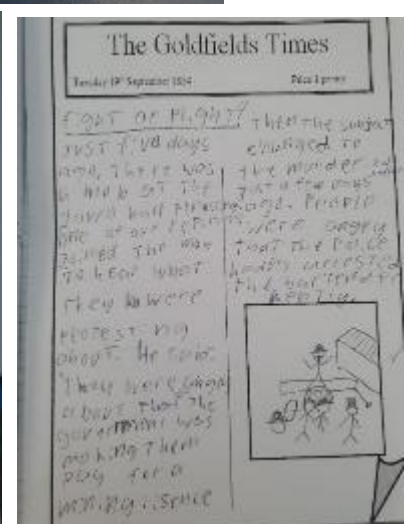 The Goldfields Times
Tuesday 19th September 1854
Price 1 penny
FIGHT or FLIGHT!
JUST FIVE days
ago, there was
a mob at the
town hall
one of our
joined the mob
to hear what
they were
protesting
about. He said:
"They were
about that the
government was
making them
pay for a
mining lisence
Then the subject
changed to
the murder
just a few days
ago. People
were angry
that the police
hadn't arrested
the